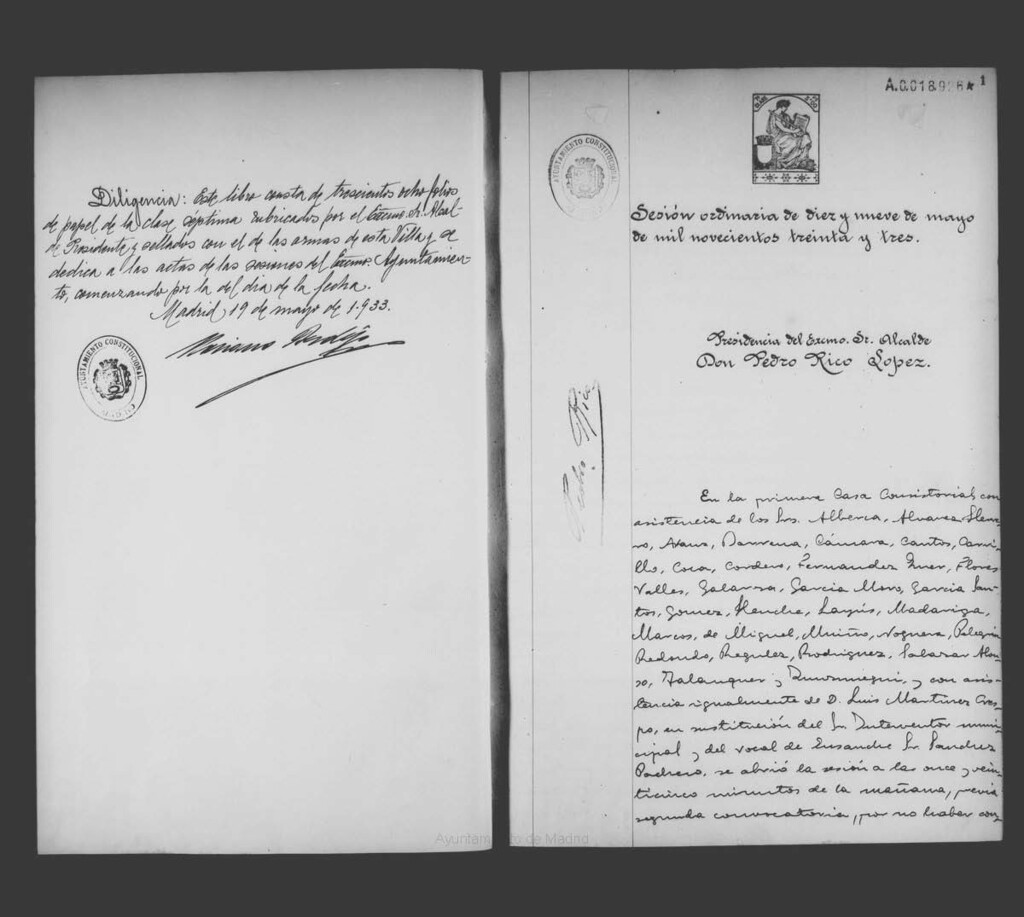 Diligencia: Este libro consta de trescientos ocho folios
de papel de la clase séptima rubricados por el Excmo. Sr. Alcal-
de Presidente y sellados con el de las armas de esta Villa y se
dedica a las actas de las sesiones del Excmo. Ayuntamien-
to, comenzando por la del dia de la fecha.
Madrid 19 de mayo de 1.933.
Mariano
AYUNTAMIENTO CONSTITUCIONAL
A.0.018.9 8* 1
AYUNTAMIENTO CONSTITUCIONAL
Sesión ordinaria de diez y nueve de mayo
de mil novecientos treinta y tres.
Presidencia del Excmo. Sr. Alcalde
Don Pedro Rico Lopez.
Pedro Rico
En la primera Casa Consistorial, con
asistencia de los Srs. Alberca, Alvarez Herre-
ro, Arauz, Barrena, Cámara, Cantos, Carri-
llo, Coca, Cordero, Fernandez Quer, Flores
Valles, Galarza, Garcia Moro, Garcia San-
tos, Gomez, Henche, Layús, Madariaga,
Marcos, de Miguel, Muiño, Noguera, Pelegrin
Redondo, Regulez, Rodriguez, Salazar Alon-
so, Talanquer y Zunzunegui, y con asis-
tencia igualmente de D. Luis Martinez Cres-
po, en sustitución del Sr. Interventor muni-
cipal y del vocal de Ensanche Sr. Sanchez
Pacheco, se abrió la sesión a las once y vein-
ticinco minutos de la mañana, previa
segunda convocatoria, por no haber con-
Ayuntamiento de Madrid